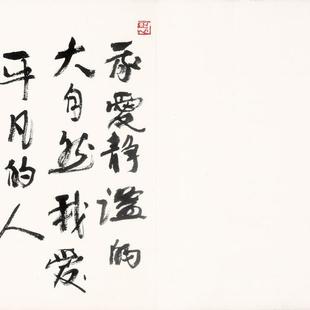 我愛静谧的
大自然我爱
平凡的人